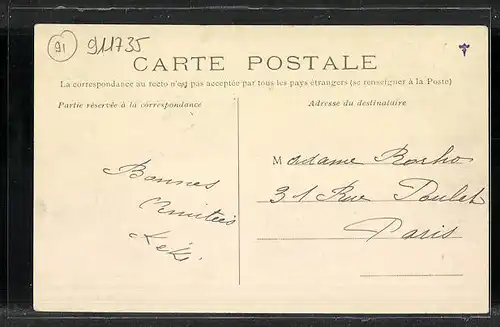 91 911735
CARTE POSTALE
La correspondance au recto n'est pas acceptée par tous les pays étrangers (se renseigner à la Poste)
Partie réservée à la correspondance
Adresse du destinataire
Bonnes
Amitiés
Madame
31 Rue Poulet
Paris